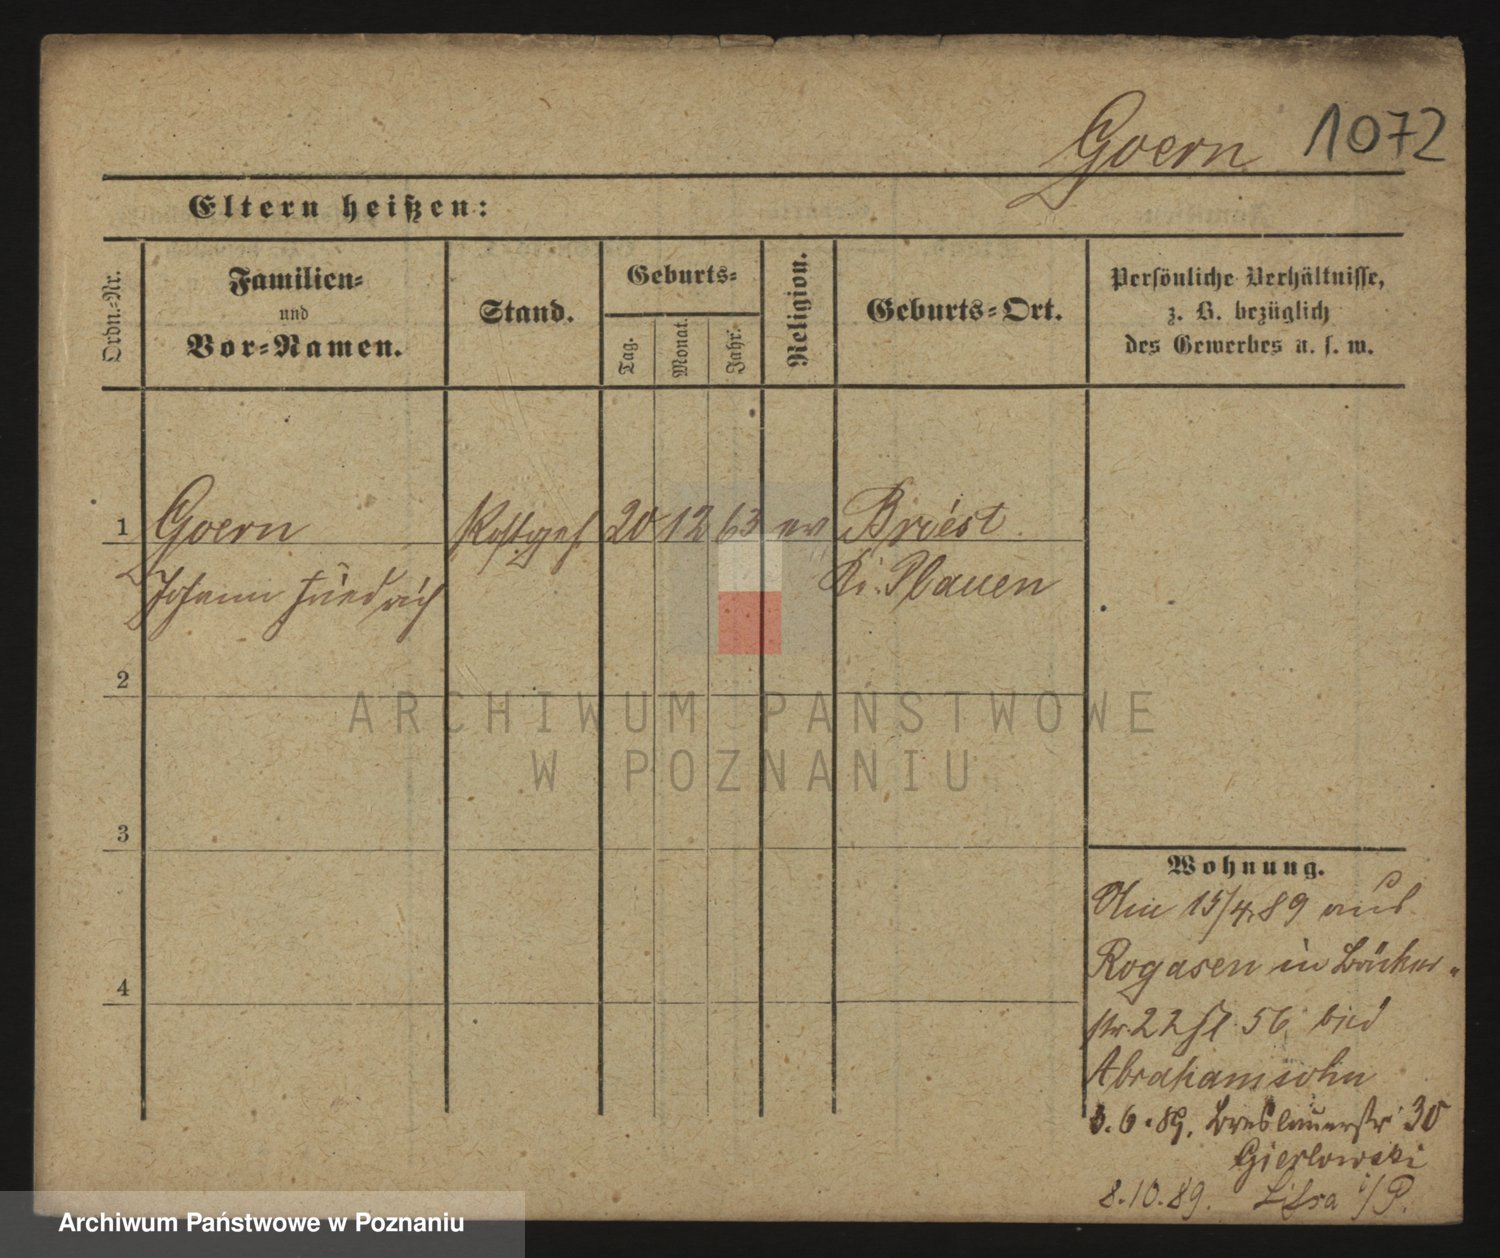 Goern 1072
Eltern heißen:
Ordn.-Nr.
Familien-
und
Vor-Namen.
Stand.
Geburts-
Tag.
Monat.
Jahr.
Religion.
Geburts-Ort.
Persönliche Verhältnisse,
z. B. bezüglich
des Gewerbes u. s. w.
1 Goern
Johann Friedrich
20 12 63 ev Briest
Kr. Plauen
2
ARCHIWUM PAŃSTWOWE
W POZNANIU
3
4
Wohnung.
15/4.89 aus
Rogasen in Bäcker-
str. 22 56 bei
Abrahamsohn
3.6.89. Breslauerstr 30
Gierlowski
8.10.89. Lissa i/P.
Archiwum Państwowe w Poznaniu